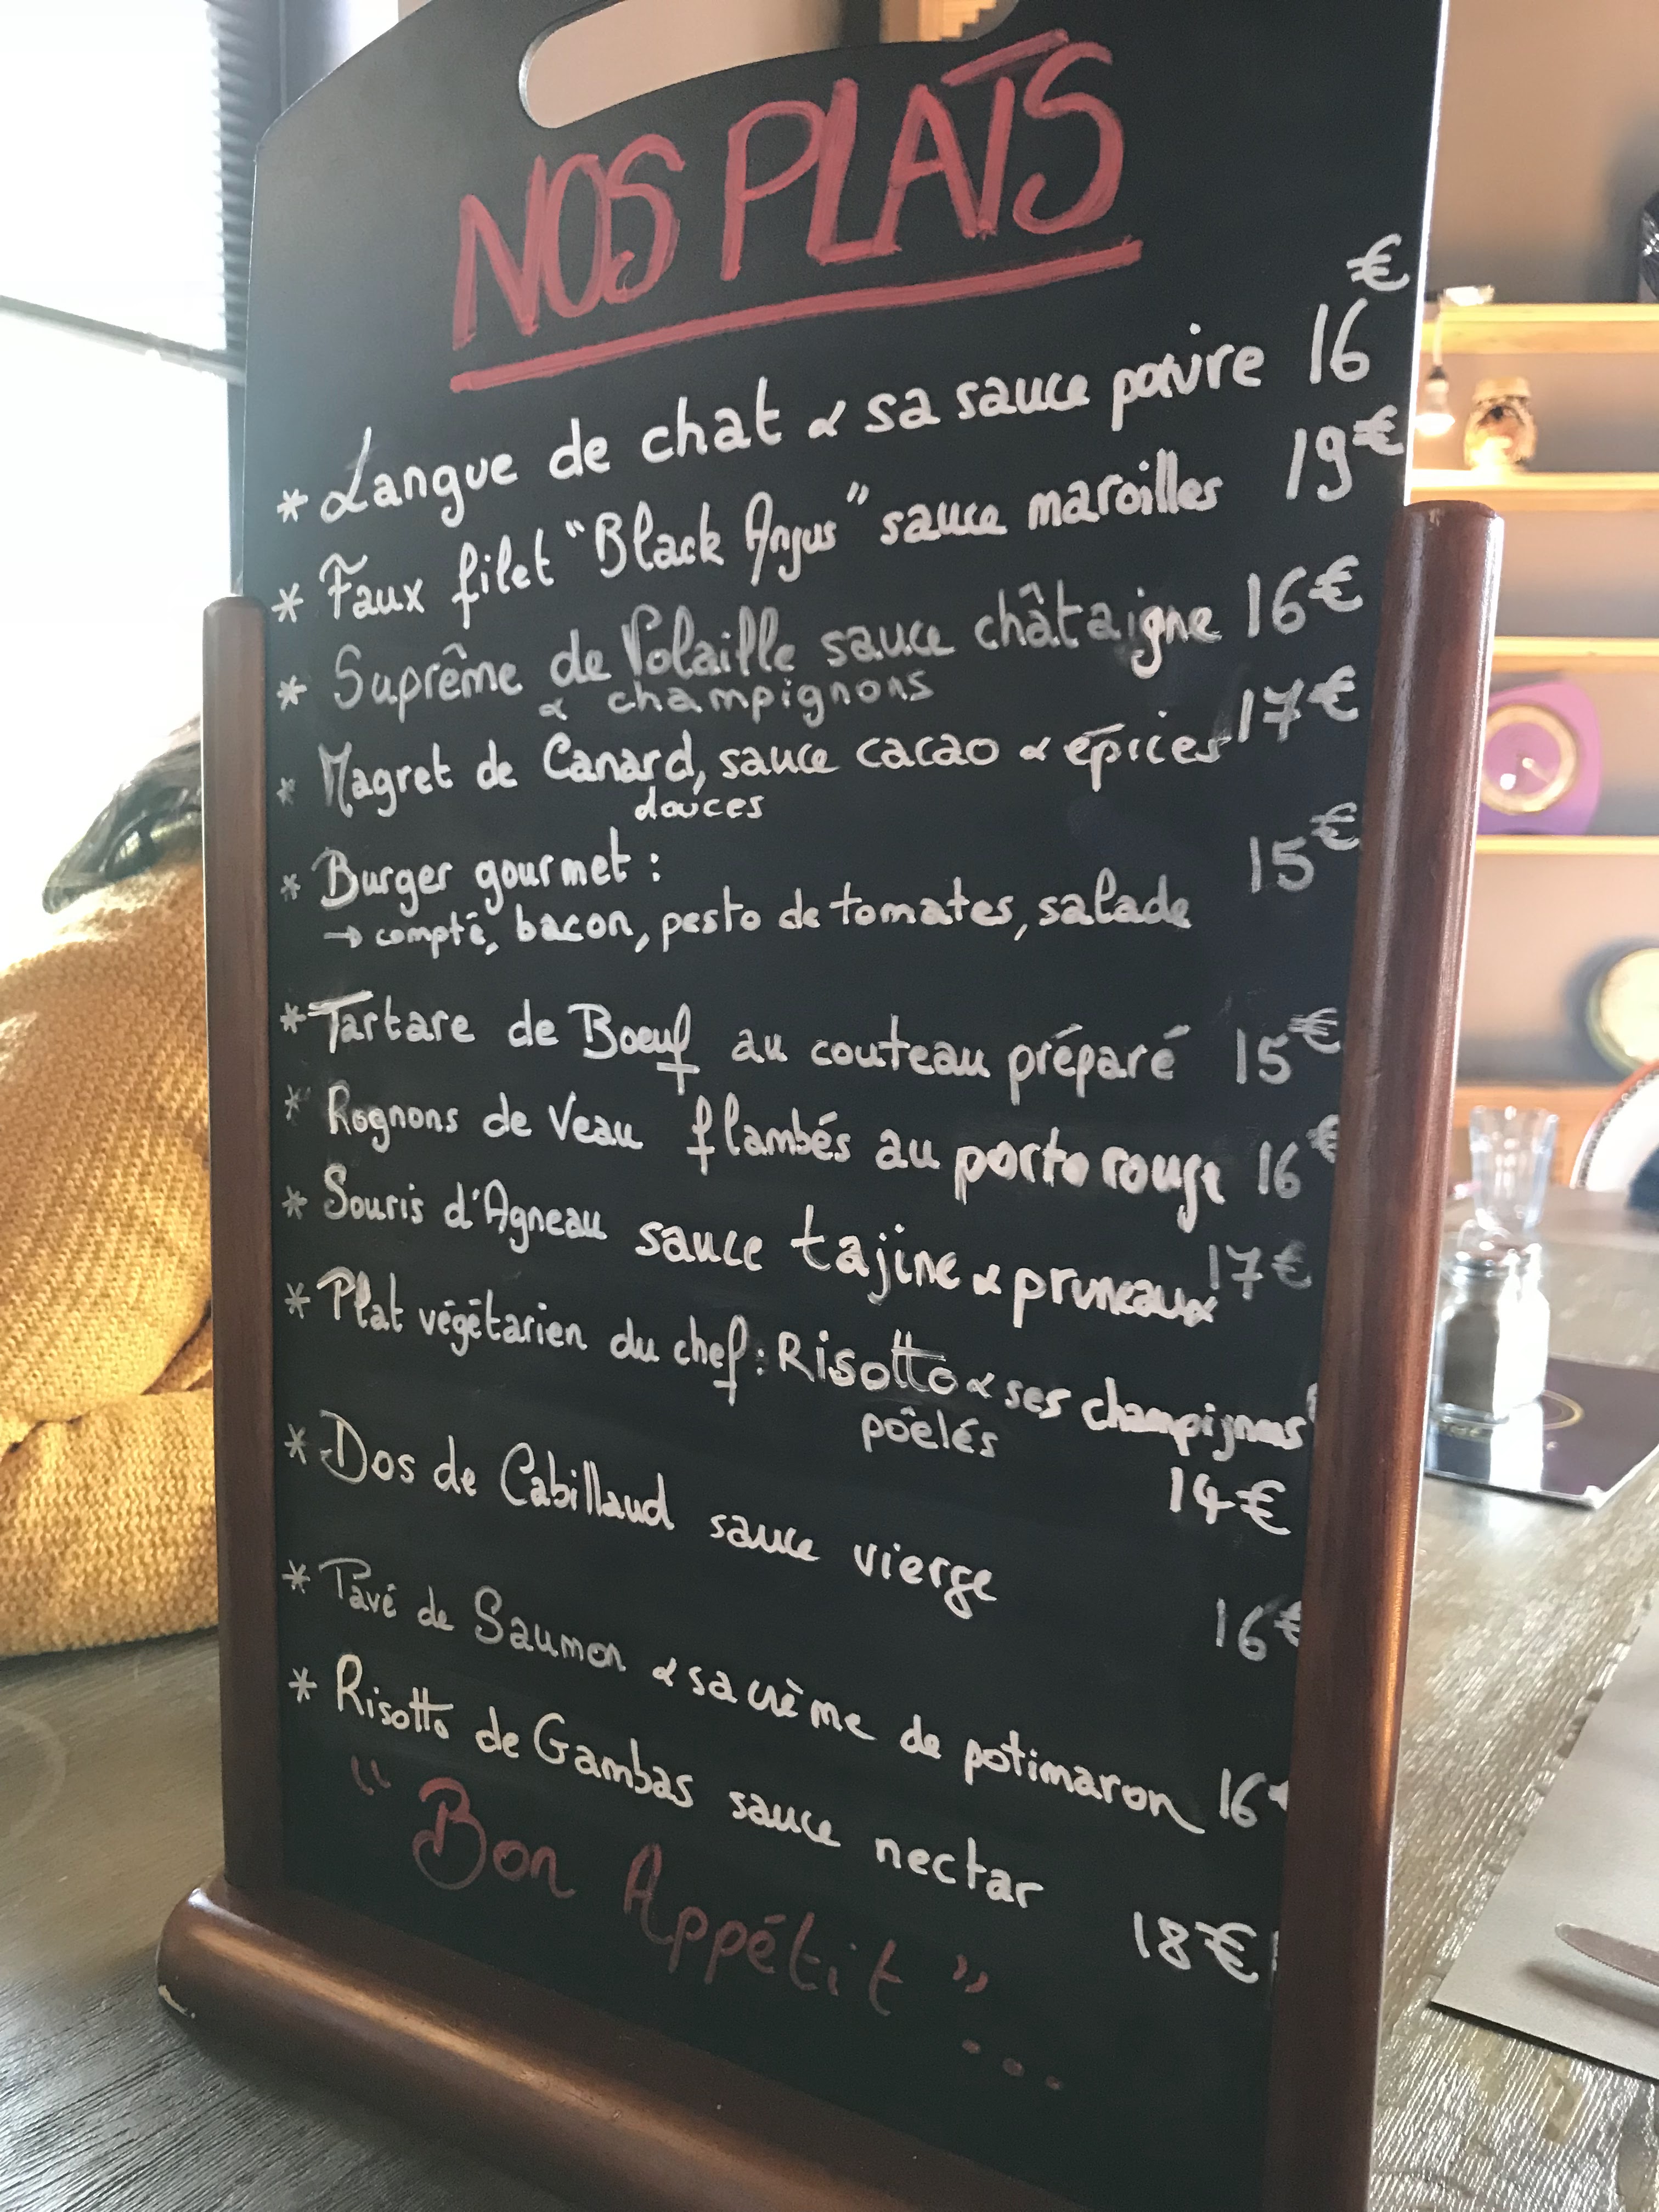 NOS PLATS
* Langue de chat & sa sauce poivre 16€
* Faux filet "Black Angus" sauce maroilles 19€
* Suprême de Volaille sauce châtaigne 16€
& champignons
* Magret de Canard, sauce cacao & épices 17€
douces
* Burger gourmet : 15€
→ compté, bacon, pesto de tomates, salade
* Tartare de Boeuf au couteau préparé 15€
* Rognons de Veau flambés au porto rouge 16€
* Souris d'Agneau sauce tajine & pruneaux 17€
* Plat végétarien du chef : Risotto & ses champignons
poêlés 14€
* Dos de Cabillaud sauce vierge 16€
* Pavé de Saumon & sa crème de potimaron 16€
* Risotto de Gambas sauce nectar 18€
"Bon Appétit"...